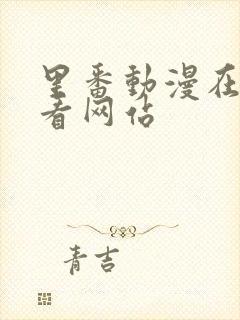 里番動漫在
看网站
青吉